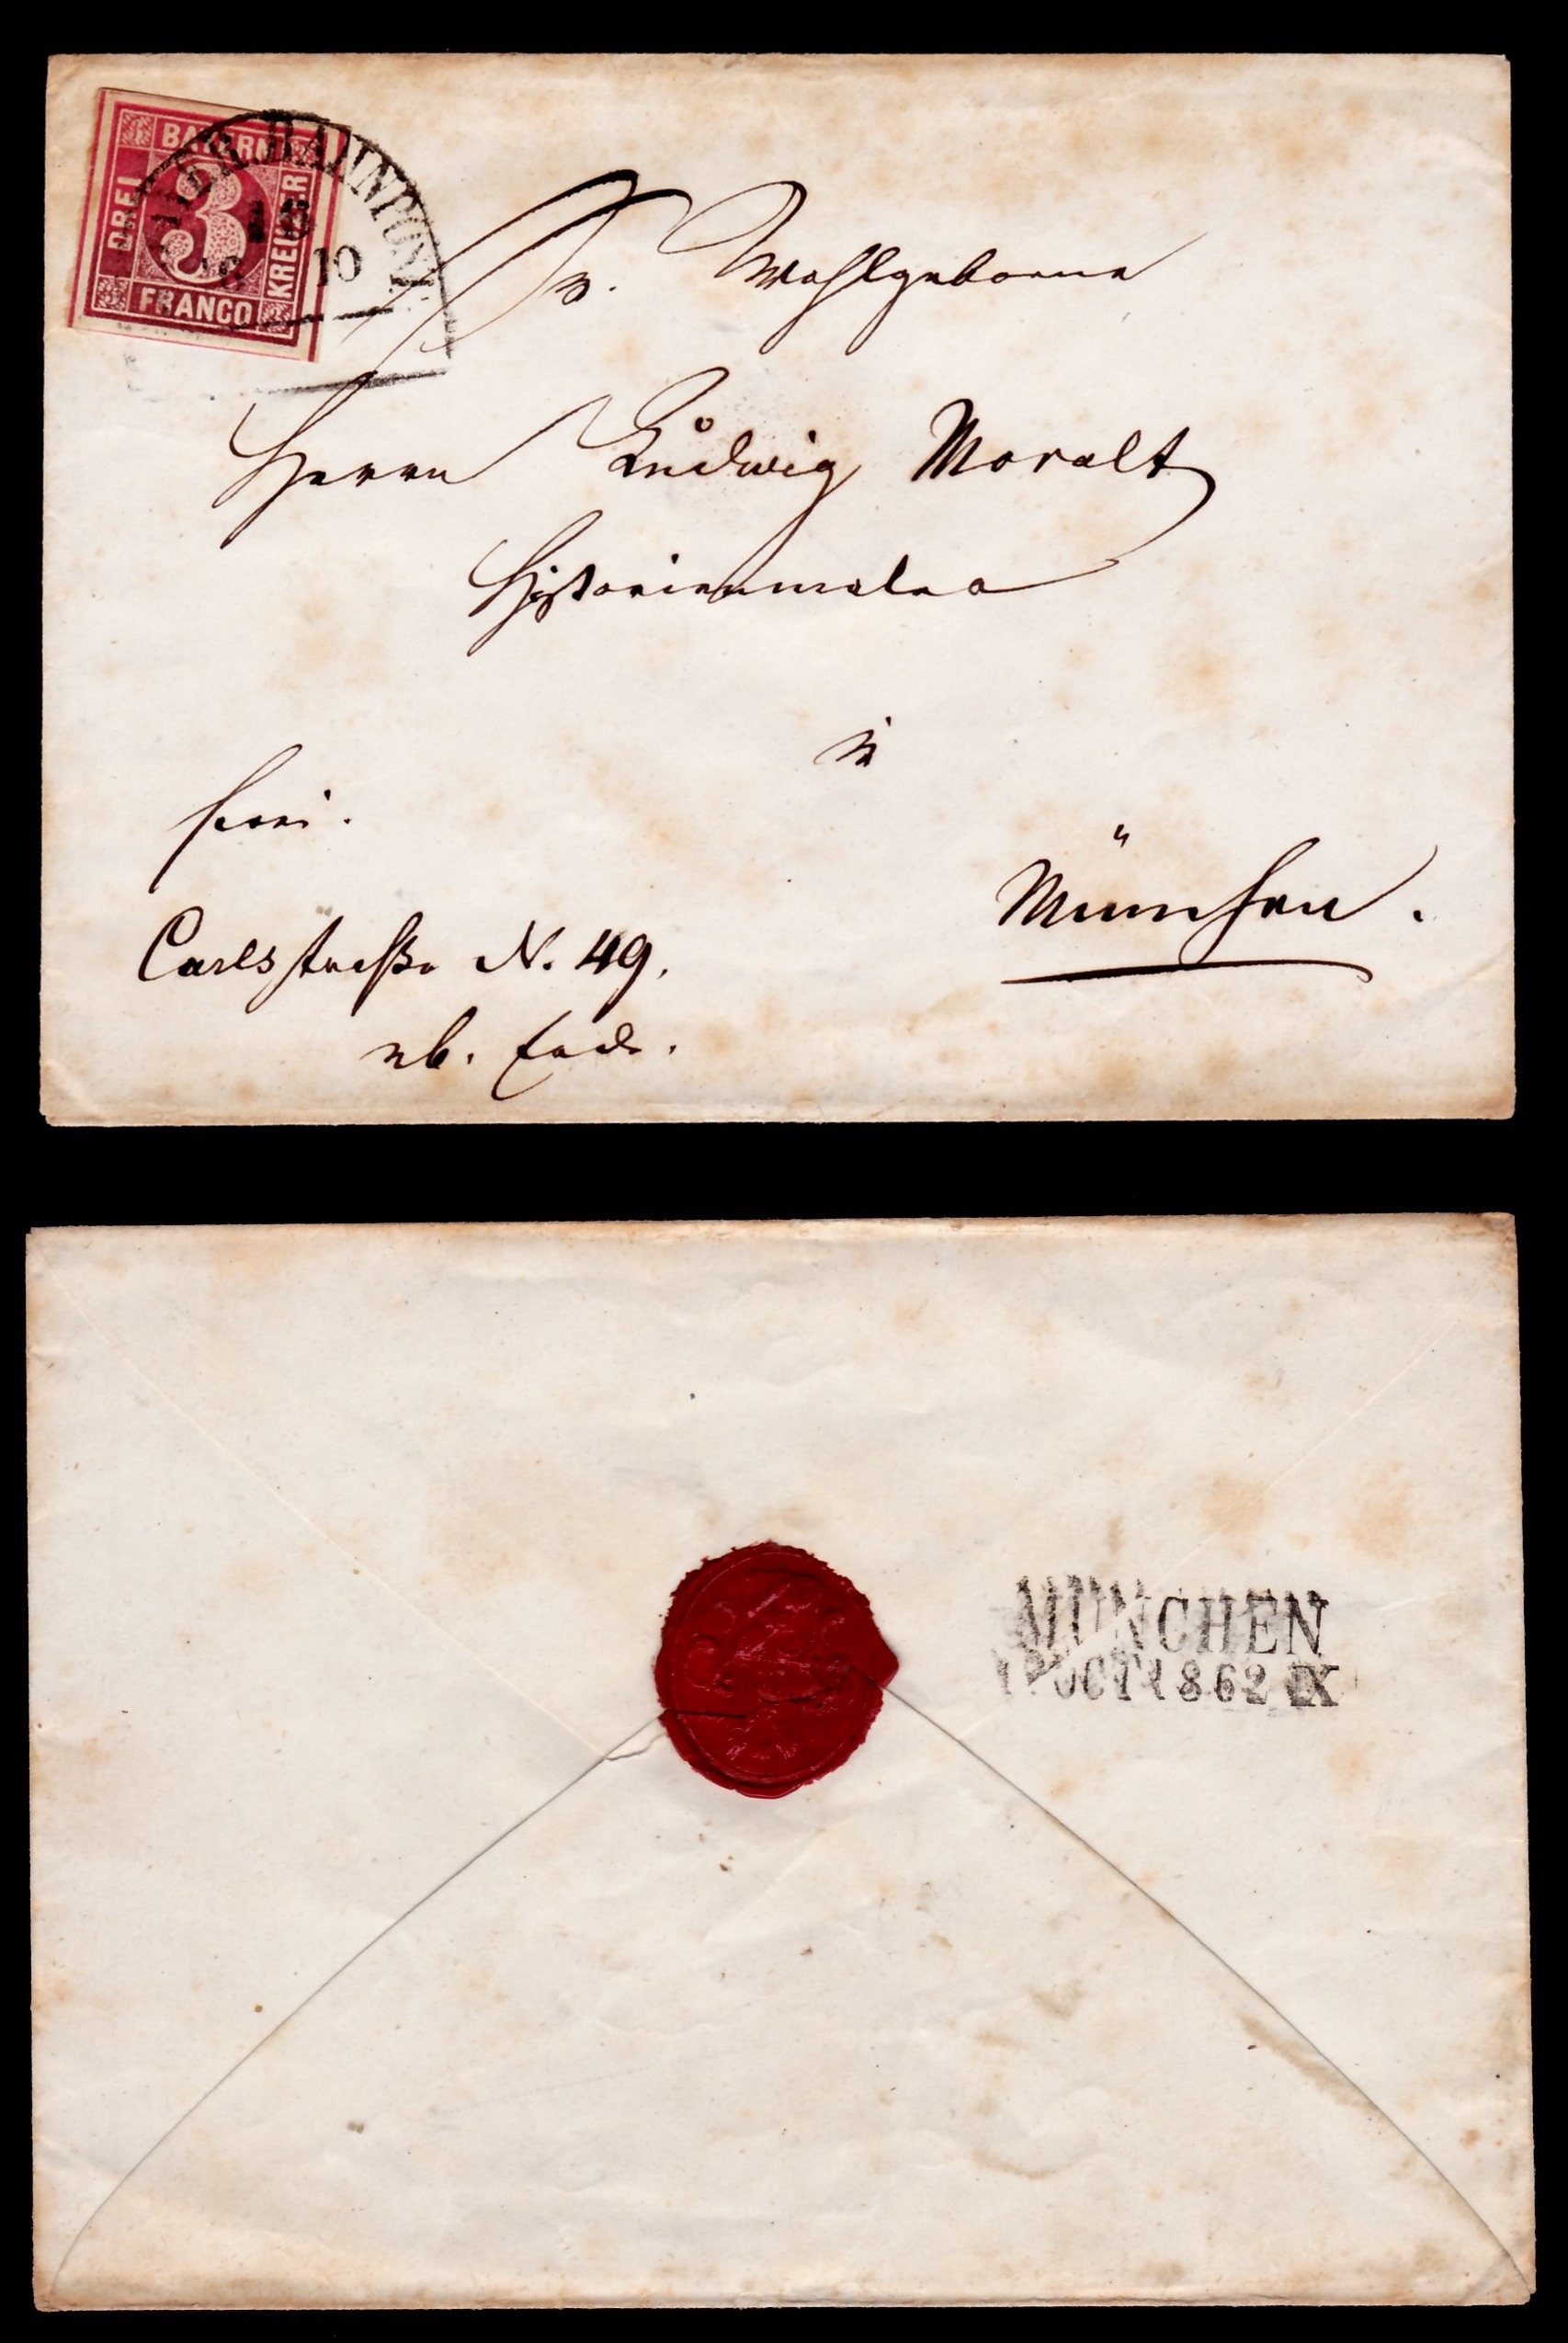 BAYERN
DREI
3
KREUZER
FRANCO
BAHNPOST
10
Sr. Wohlgeboren
Herrn Ludwig Moralt
Historienmaler
in
frei.
München.
Carlsstraße N. 49.
eb. Erde.
MÜNCHEN
OCT 1862 IX